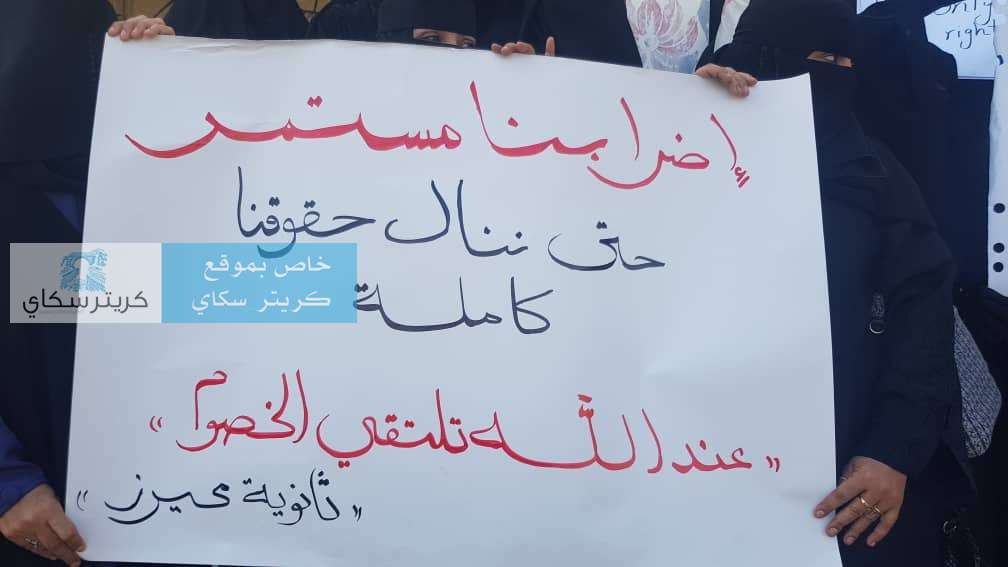 only
right
إضرابنا مستمر
حتى ننال حقوقنا
كاملة
«عند الله تلتقي الخصوم»
«ثانوية محيرز»
خاص بموقع
كريتر سكاي
كريتر سكاي